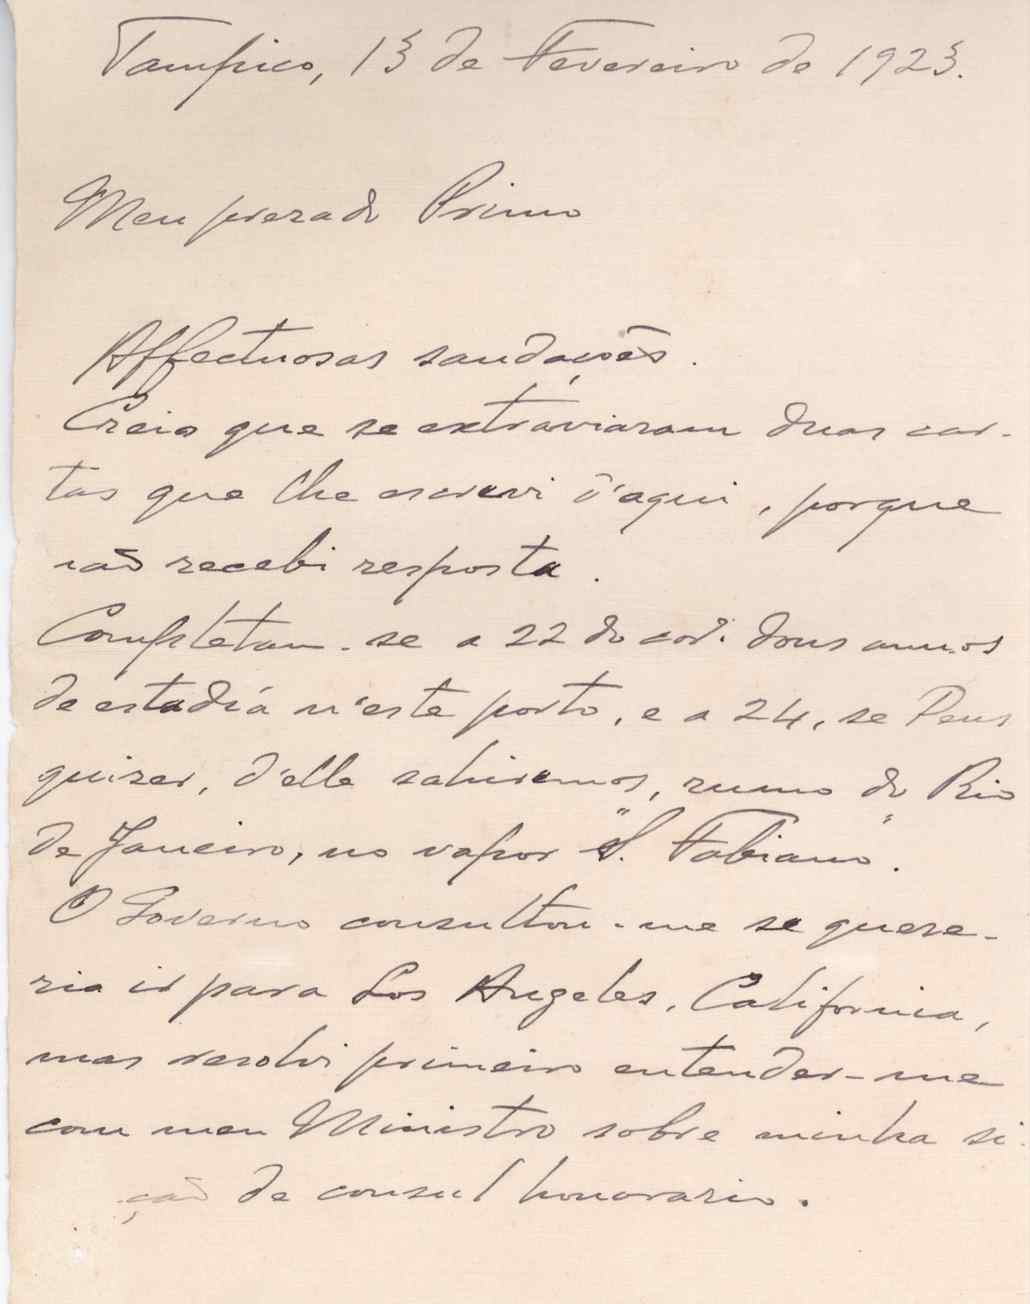 Tampico, 13 de Fevereiro de 1923.
Meu prezado Primo
Affectuosas saudações.
Creio que se extraviaram duas car-
tas que lhe escrevi d'aqui, porque
não recebi resposta.
Completam-se a 22 do cor. dous annos
de estadía n'este porto, e a 24, se Deus
quizer, d'elle sahiremos, rumo do Rio
de Janeiro, no vapor "S. Fabiano".
O Governo consultou-me se quere-
ria ir para Los Angeles, California,
mas resolvi primeiro entender-me
com meu Ministro sobre minha si-
ção de consul honorario.